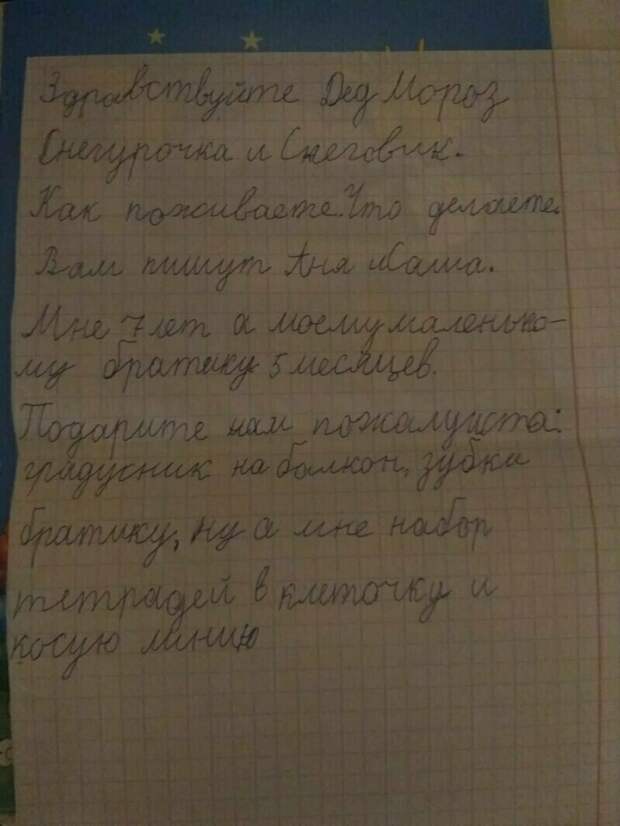 Здравствуйте Дед Мороз
Снегурочка и Снеговик.
Как поживаете. Что делаете.
Вам пишут Аня Маша.
Мне 7 лет а моему маленько-
му братику 5 месяцев.
Подарите нам пожалуйста:
градусник на балкон, зубки
братику, ну а мне набор
тетрадей в клеточку и
косую линию